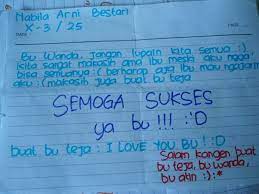 Nabila Arni Bestari
X-3 / 25
DATE
Bu Wanda, jangan lupain kita semua :)
kita sangat makasih ama ibu meski aku ngga
bisa semuanya :( berharap aja ibu mau ngajarin
aku :( makasih juga buat bu teja
SEMOGA SUKSES
ya bu !!! :'D
buat bu teja : I LOVE YOU BU! :D
Salam kangen buat
bu teja, bu wanda,
bu atin :) :*